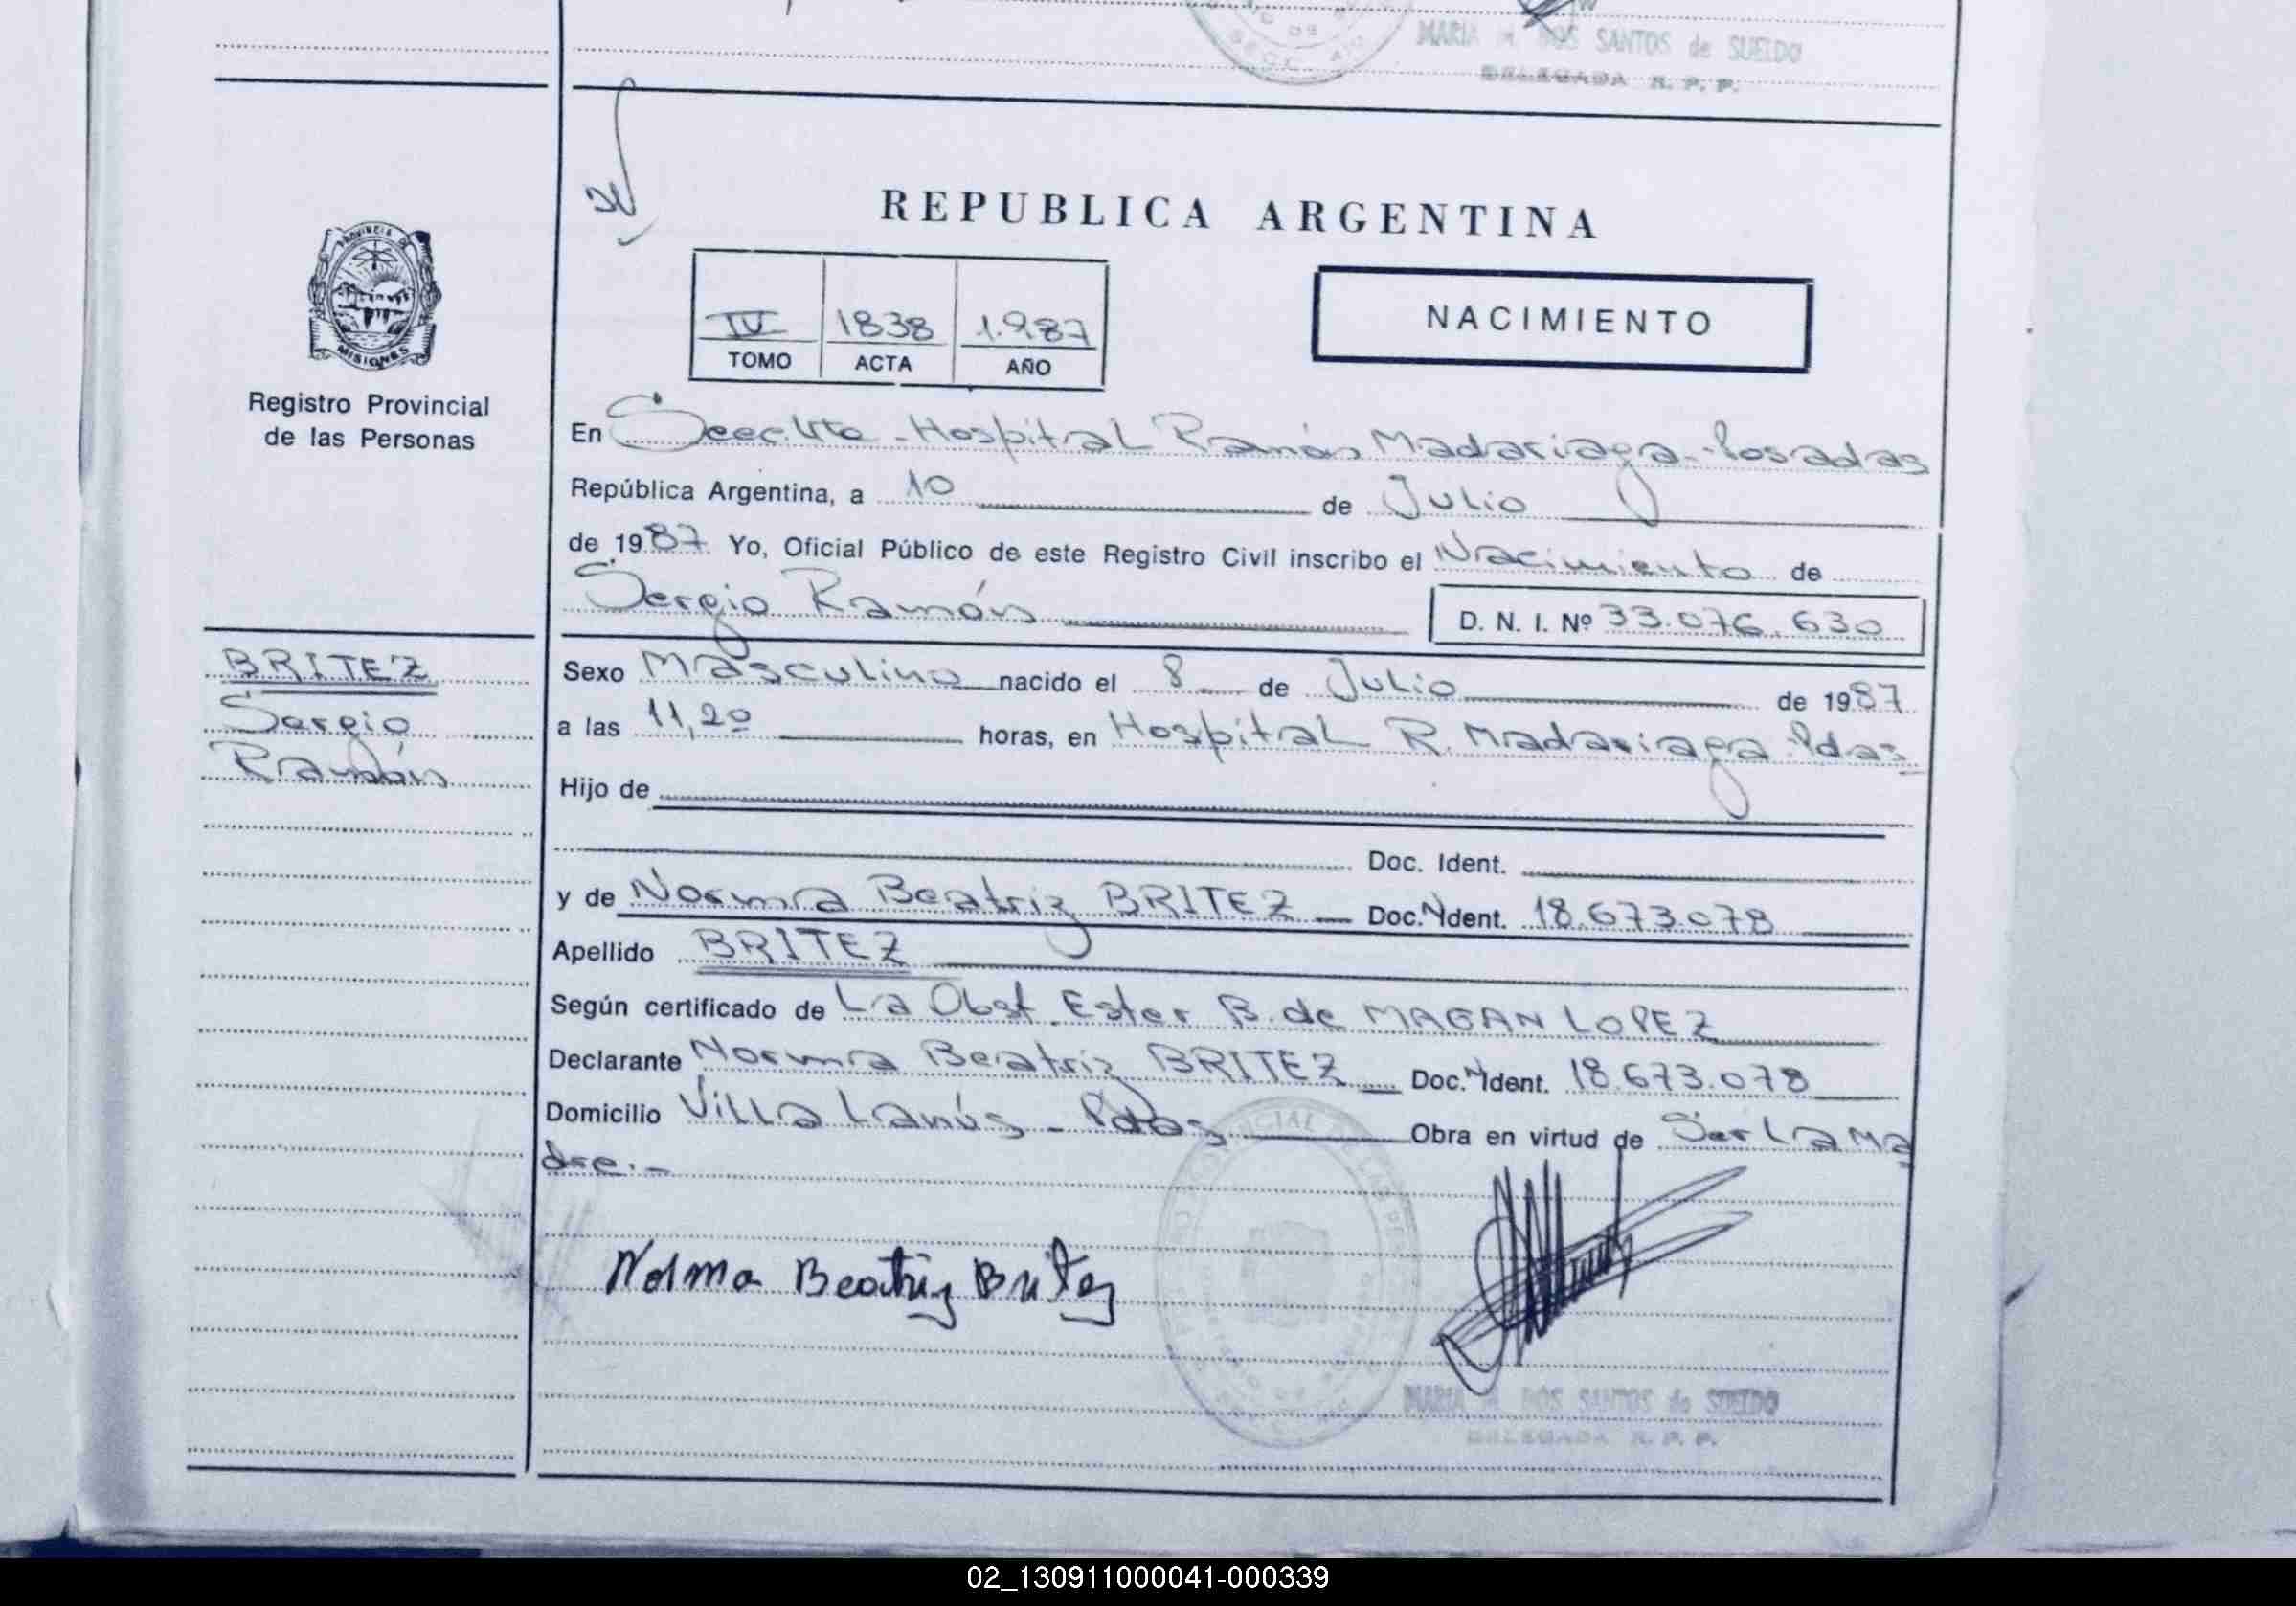 MARIA M DOS SANTOS de SUELDO
DELEGADA R. P. P.
REPUBLICA ARGENTINA
PROVINCIA DE
MISIONES
Registro Provincial
de las Personas
IV 1838 1.987
TOMO ACTA AÑO
NACIMIENTO
En Seeclta - Hospital Ramón Madariaga - Posadas
República Argentina, a 10 de Julio
de 1987. Yo, Oficial Público de este Registro Civil inscribo el Nacimiento de
Sergio Ramón
D. N. I. Nº 33.076.630
BRITEZ
Sergio
Ramón
Sexo Masculino nacido el 8 de Julio de 1987
a las 11,20 horas, en Hospital R. Madariaga Pdas
Hijo de
Doc. Ident.
y de Norma Beatriz BRITEZ Doc. Ident. 18.673.078
Apellido BRITEZ
Según certificado de La Obst. Ester B. de MAGAN LOPEZ
Declarante Norma Beatriz BRITEZ Doc. Ident. 18.673.078
Domicilio Villa Lanús - Pdas Obra en virtud de Ser La Ma
dre.-
Norma Beatriz Britez
MARIA M DOS SANTOS de SUELDO
DELEGADA R. P. P.
02_130911000041-000339